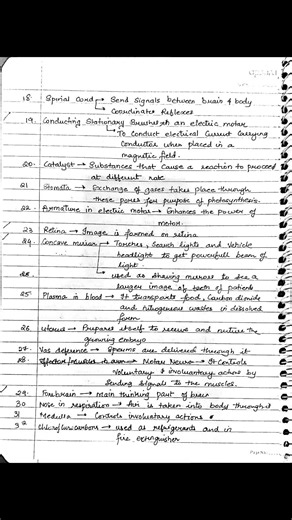 18. Spinal Cord → Send Signals between brain & body
→ Coordinate Reflexes
19. Conducting Stationary Brushes in an electric motor
→ To Conduct electrical Current Carrying
Conductor when placed in a
magnetic field.
20. Catalyst → Substances that Cause a reaction to proceed
at different rate
21. Stomata → Exchange of gases takes place through
these pores for purpose of photosynthesis.
22. Armature in electric motor → Enhances the power of
motor.
23. Retina → Image is formed on retina
24. Concave mirror → Torches, Search lights and Vehicle
headlight to get powerfull beam of
light.
→ used as shaving mirrors to see a
larger image of teeth of patients
25. Plasma in blood → It transports food, Carbon dioxide
and nitrogenous wastes in dissolved
form
26. Uterus → Prepares itself to receive and nurture the
growing embryo
27. Vas deference → Sperms are delivered through it
28. Motor Neuro → It Controls
Voluntary & involuntary actions by
sending signals to the muscles.
29. Forebrain → main thinking part of brain
30 Nose in respiration → Air is taken into body through it
31 Medulla → Controls involuntary actions
32 Chlorofluorocarbons → used as refrigerants and in
fire extinguisher